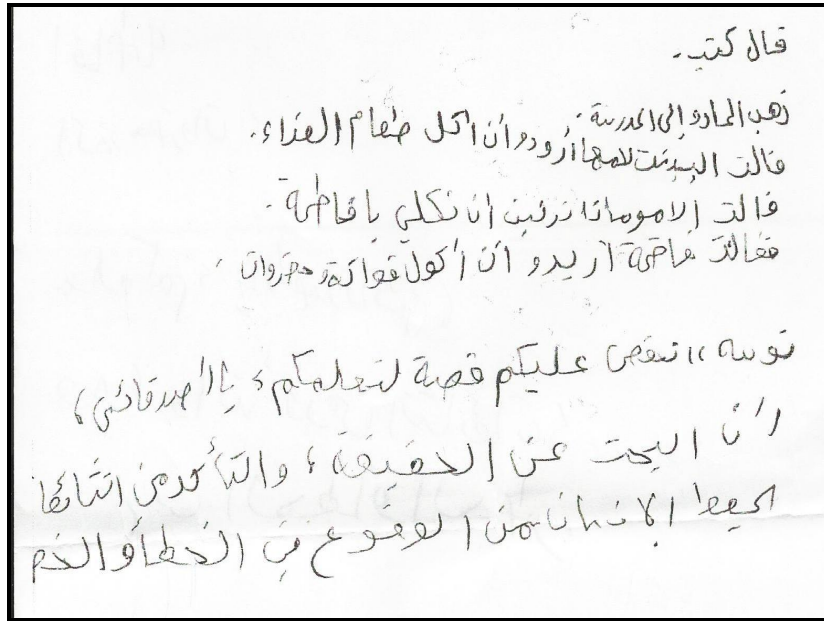 قال كتب.
ذهب المادو إلى المدرسة.
قالت البنت لامها أرودو أن اكل طعام الغداء.
قالت الامو ماذا ترئين ان تكلي يا فاطمة.
فقالت فاطمة أريدو أن أكول فواكة و خزروات.
توته ،، تقص عليكم قصة لتعلمكم، يا أصدقائي،
أن البحت عن الحقيقة، والتأكد من
الإنسان من الوقوع في الخطأ و